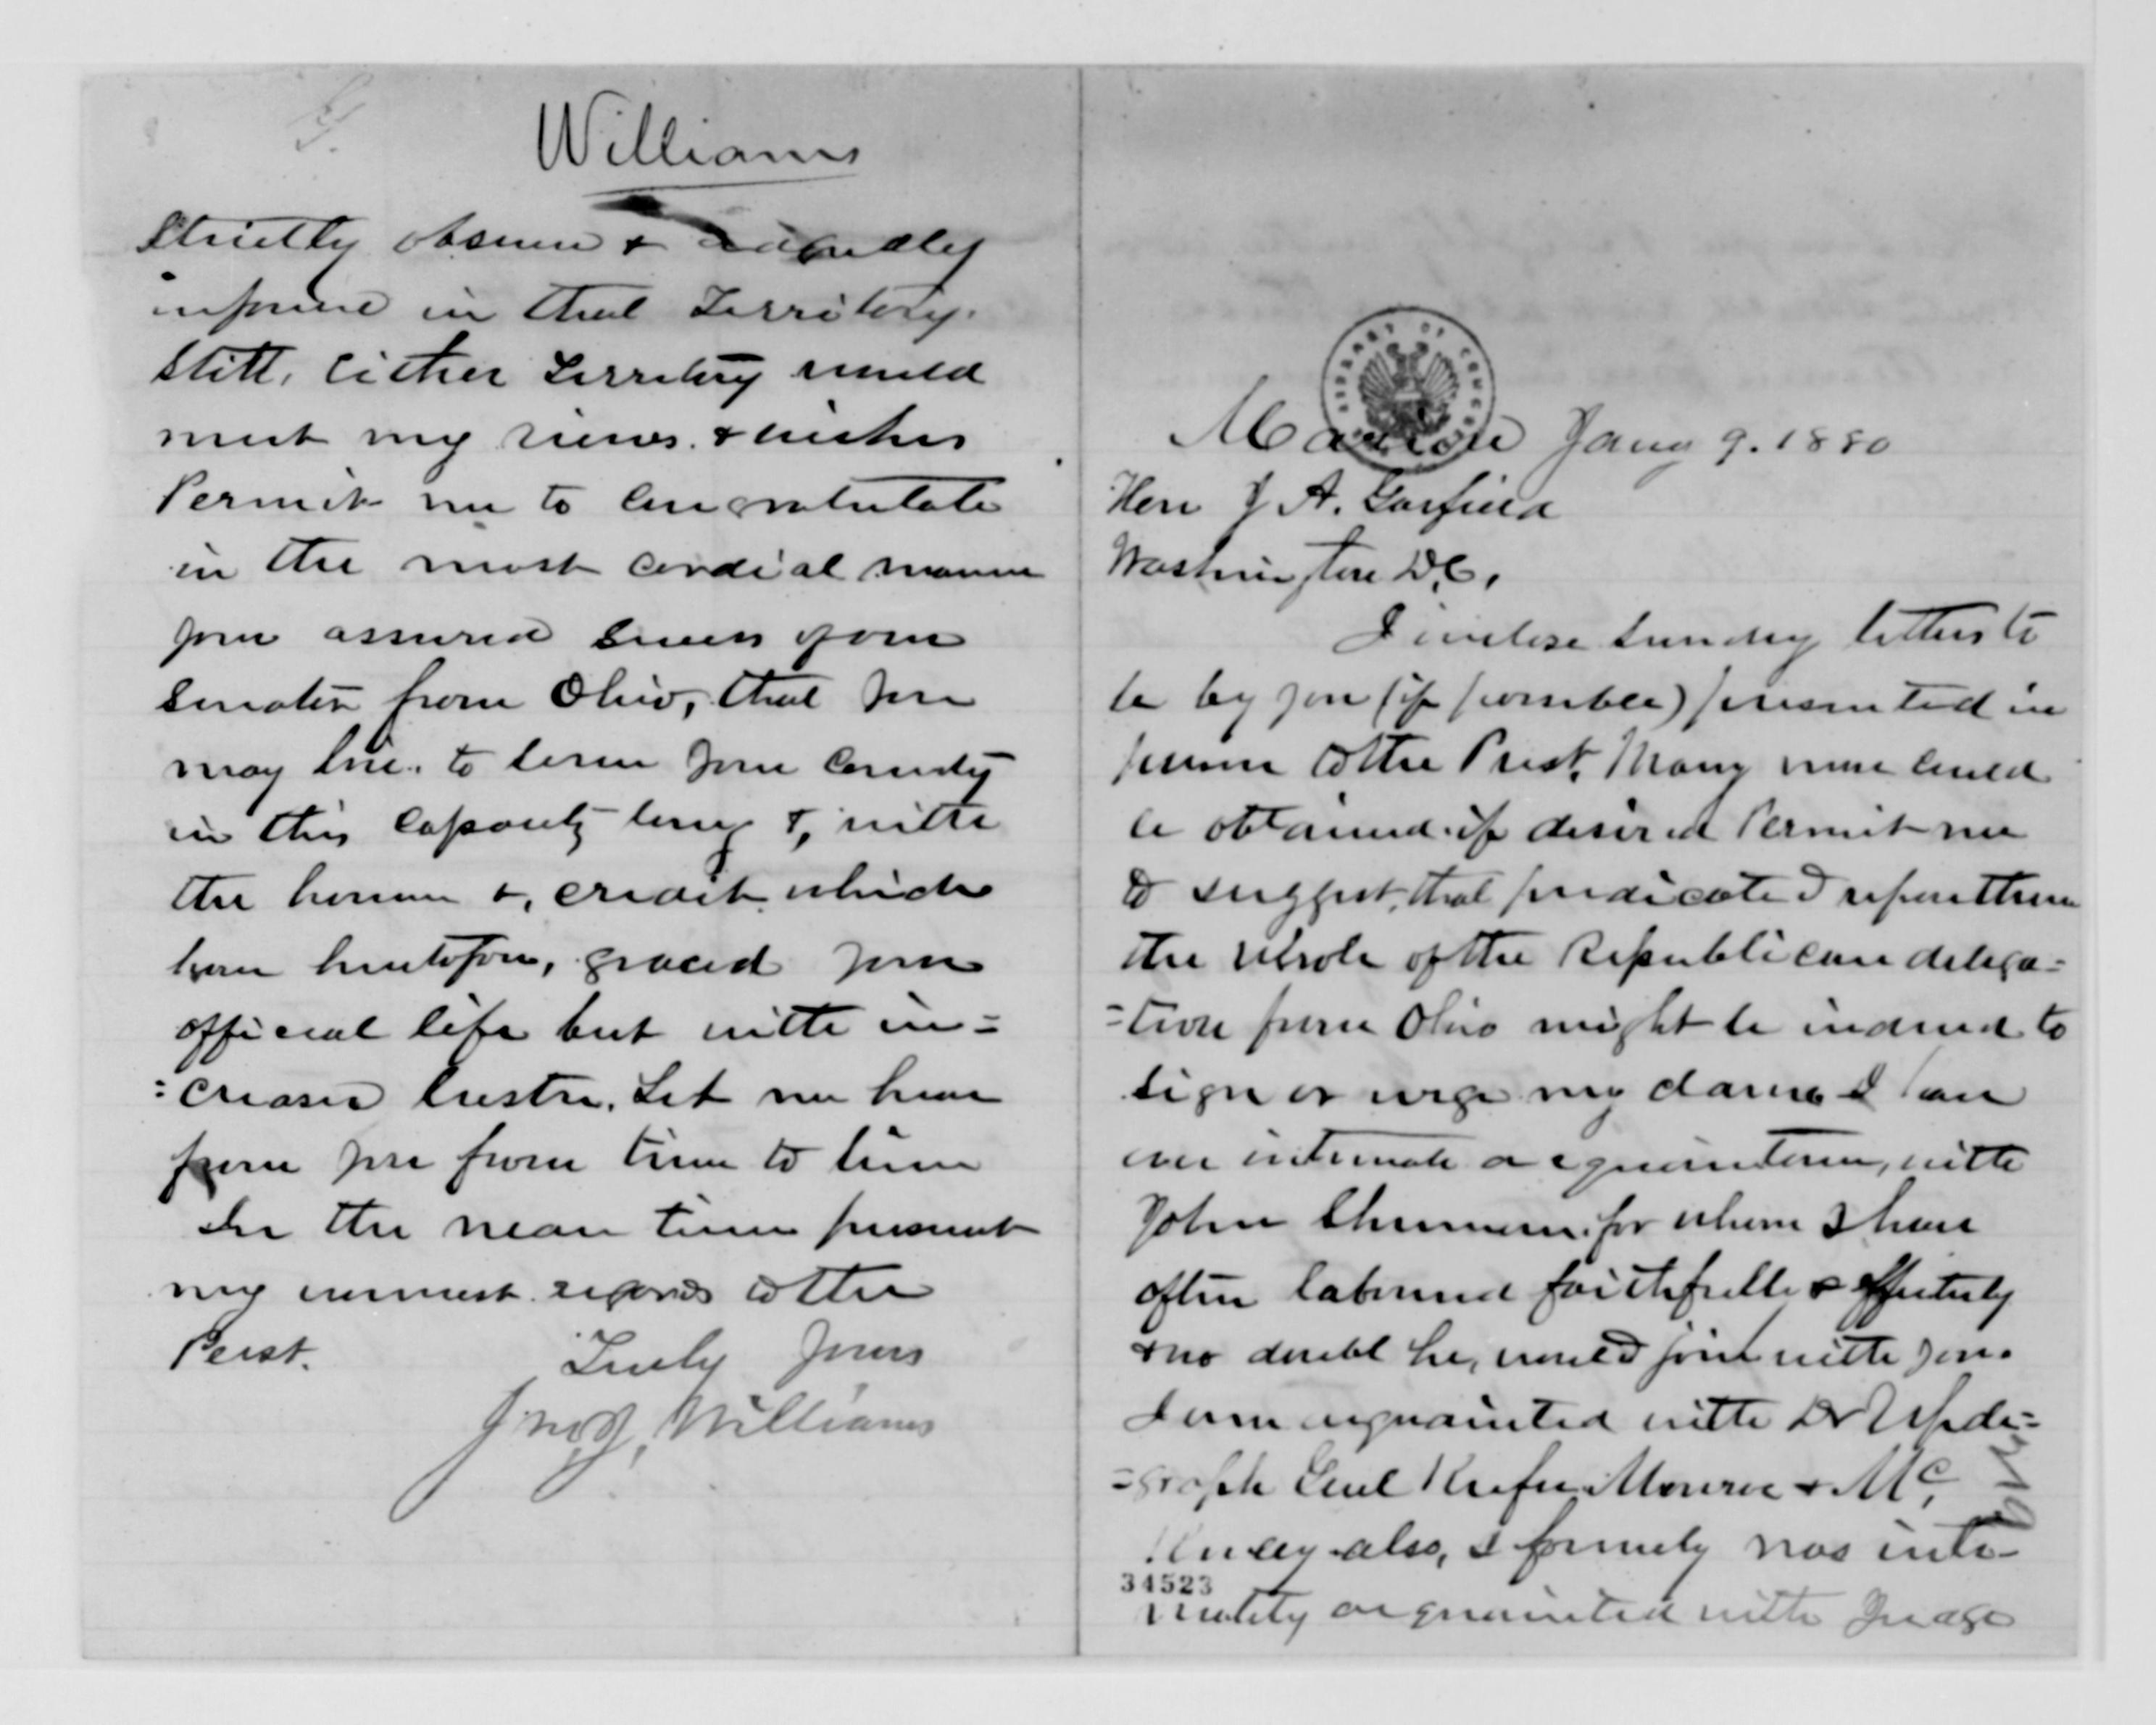 Williams
Strictly observe & rigidly
enforce in that Territory.
Still, either Territory would
meet my views & wishes
Permit me to congratulate
in the most cordial manner
your assured success of our
Senator from Ohio, that you
may live to serve your County
in this capacity long &, with
the honor &, credit which
have heretofore, graced your
official life but with in=
=creased lustre. Let me hear
from you from time to time
In the mean time present
my warmest regards to the
Prest.
Truly yours
Williams
Marion Jany 9. 1880
Hon J A. Garfield
Washington D.C.
I enclose sundry letters to
be by you (if possible) presented in
person to the Prest, Many more could
be obtained if desired Permit me
to suggest, that predicated upon them
the whole of the Republican delega=
=tion from Ohio might be induced to
sign or urge my claims I am
on intimate acquaintance, with
John Sherman for whom I have
often labored faithfully & effectively
& no doubt he, would join with you.
I am acquainted with Dr Upde=
=graph Genl Keifer Monroe & Mc,
Kinley also, I formerly was inti-
34523
mately acquainted with Judge
LIBRARY OF CONGRESS